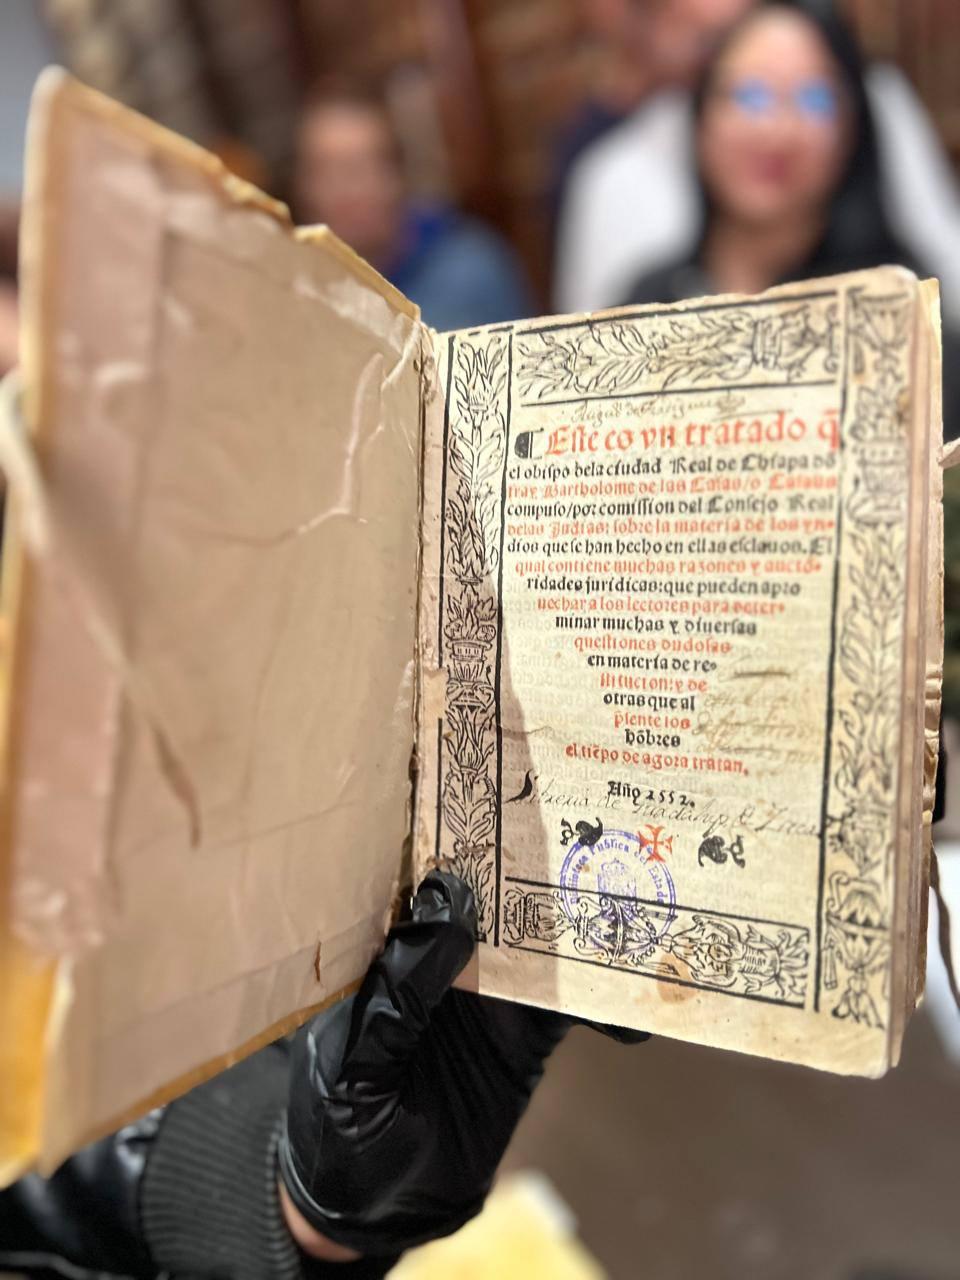 ¶ Este es vn tratado q̃
el obispo dela ciudad Real de Chiapa dõ
fray Bartholome de las Casas/o Casaus
compuso/por comission del Consejo Real
delas Indias: sobre la materia de los yn-
dios que se han hecho en ellas esclauos. El
qual contiene muchas razones y aucto-
ridades juridicas: que pueden apro
uechar a los lectores para deter-
minar muchas y diuersas
questiones dudosas
en materia de re-
stitucion: y de
otras que al
p̃sente los
hõbres
el tiẽpo de agora tratan.
Año 1552.
de Guadalupe
Biblioteca Publica del Estado